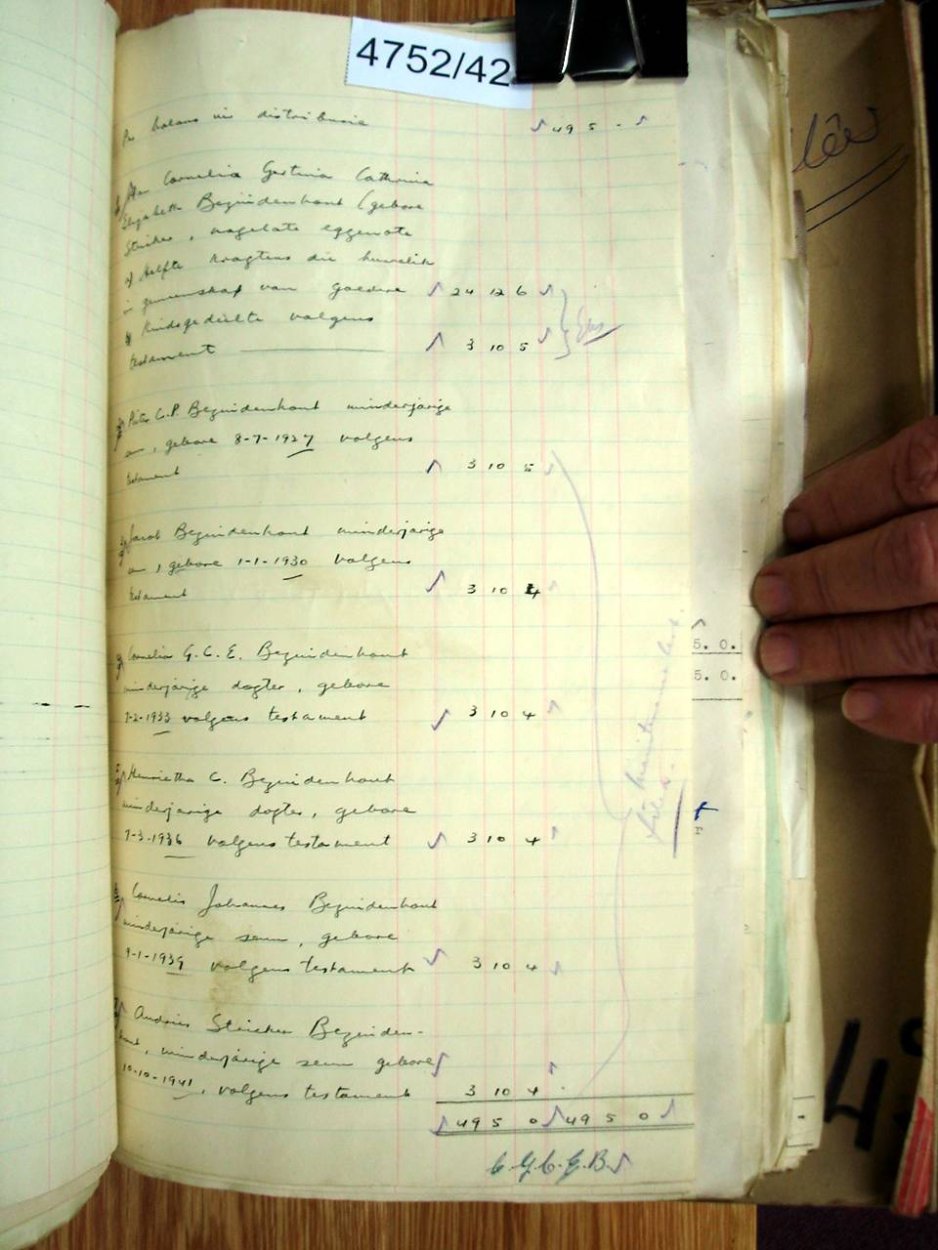 4752/42
Per balans vir distribusie 49 5 -
Aan Cornelia Gertina Cathrina
Elizabeth Bezuidenhout (gebore
Steicher, nagelate eggenote
Helfte kragtens die huwelik
in gemeenskap van goedere 24 12 6
Kindsgedeelte volgens
testament 3 10 5
Pieter C.P. Bezuidenhout minderjarige
seun, gebore 8-7-1927 volgens
testament 3 10 5
Jacob Bezuidenhout minderjarige
seun, gebore 1-1-1930 volgens
testament 3 10 4
Cornelia G.C.E. Bezuidenhout
minderjarige dogter, gebore
7-2-1933 volgens testament 3 10 4
Henrietha C. Bezuidenhout
minderjarige dogter, gebore
7-3-1936 volgens testament 3 10 4
Cornelis Johannes Bezuidenhout
minderjarige seun, gebore
9-1-1939 volgens testament 3 10 4
Andries Steicher Bezuiden-
hout, minderjarige seun gebore
10-10-1941, volgens testament 3 10 4
49 5 0 49 5 0
C.G.C.E.B.
5. 0.
5. 0.